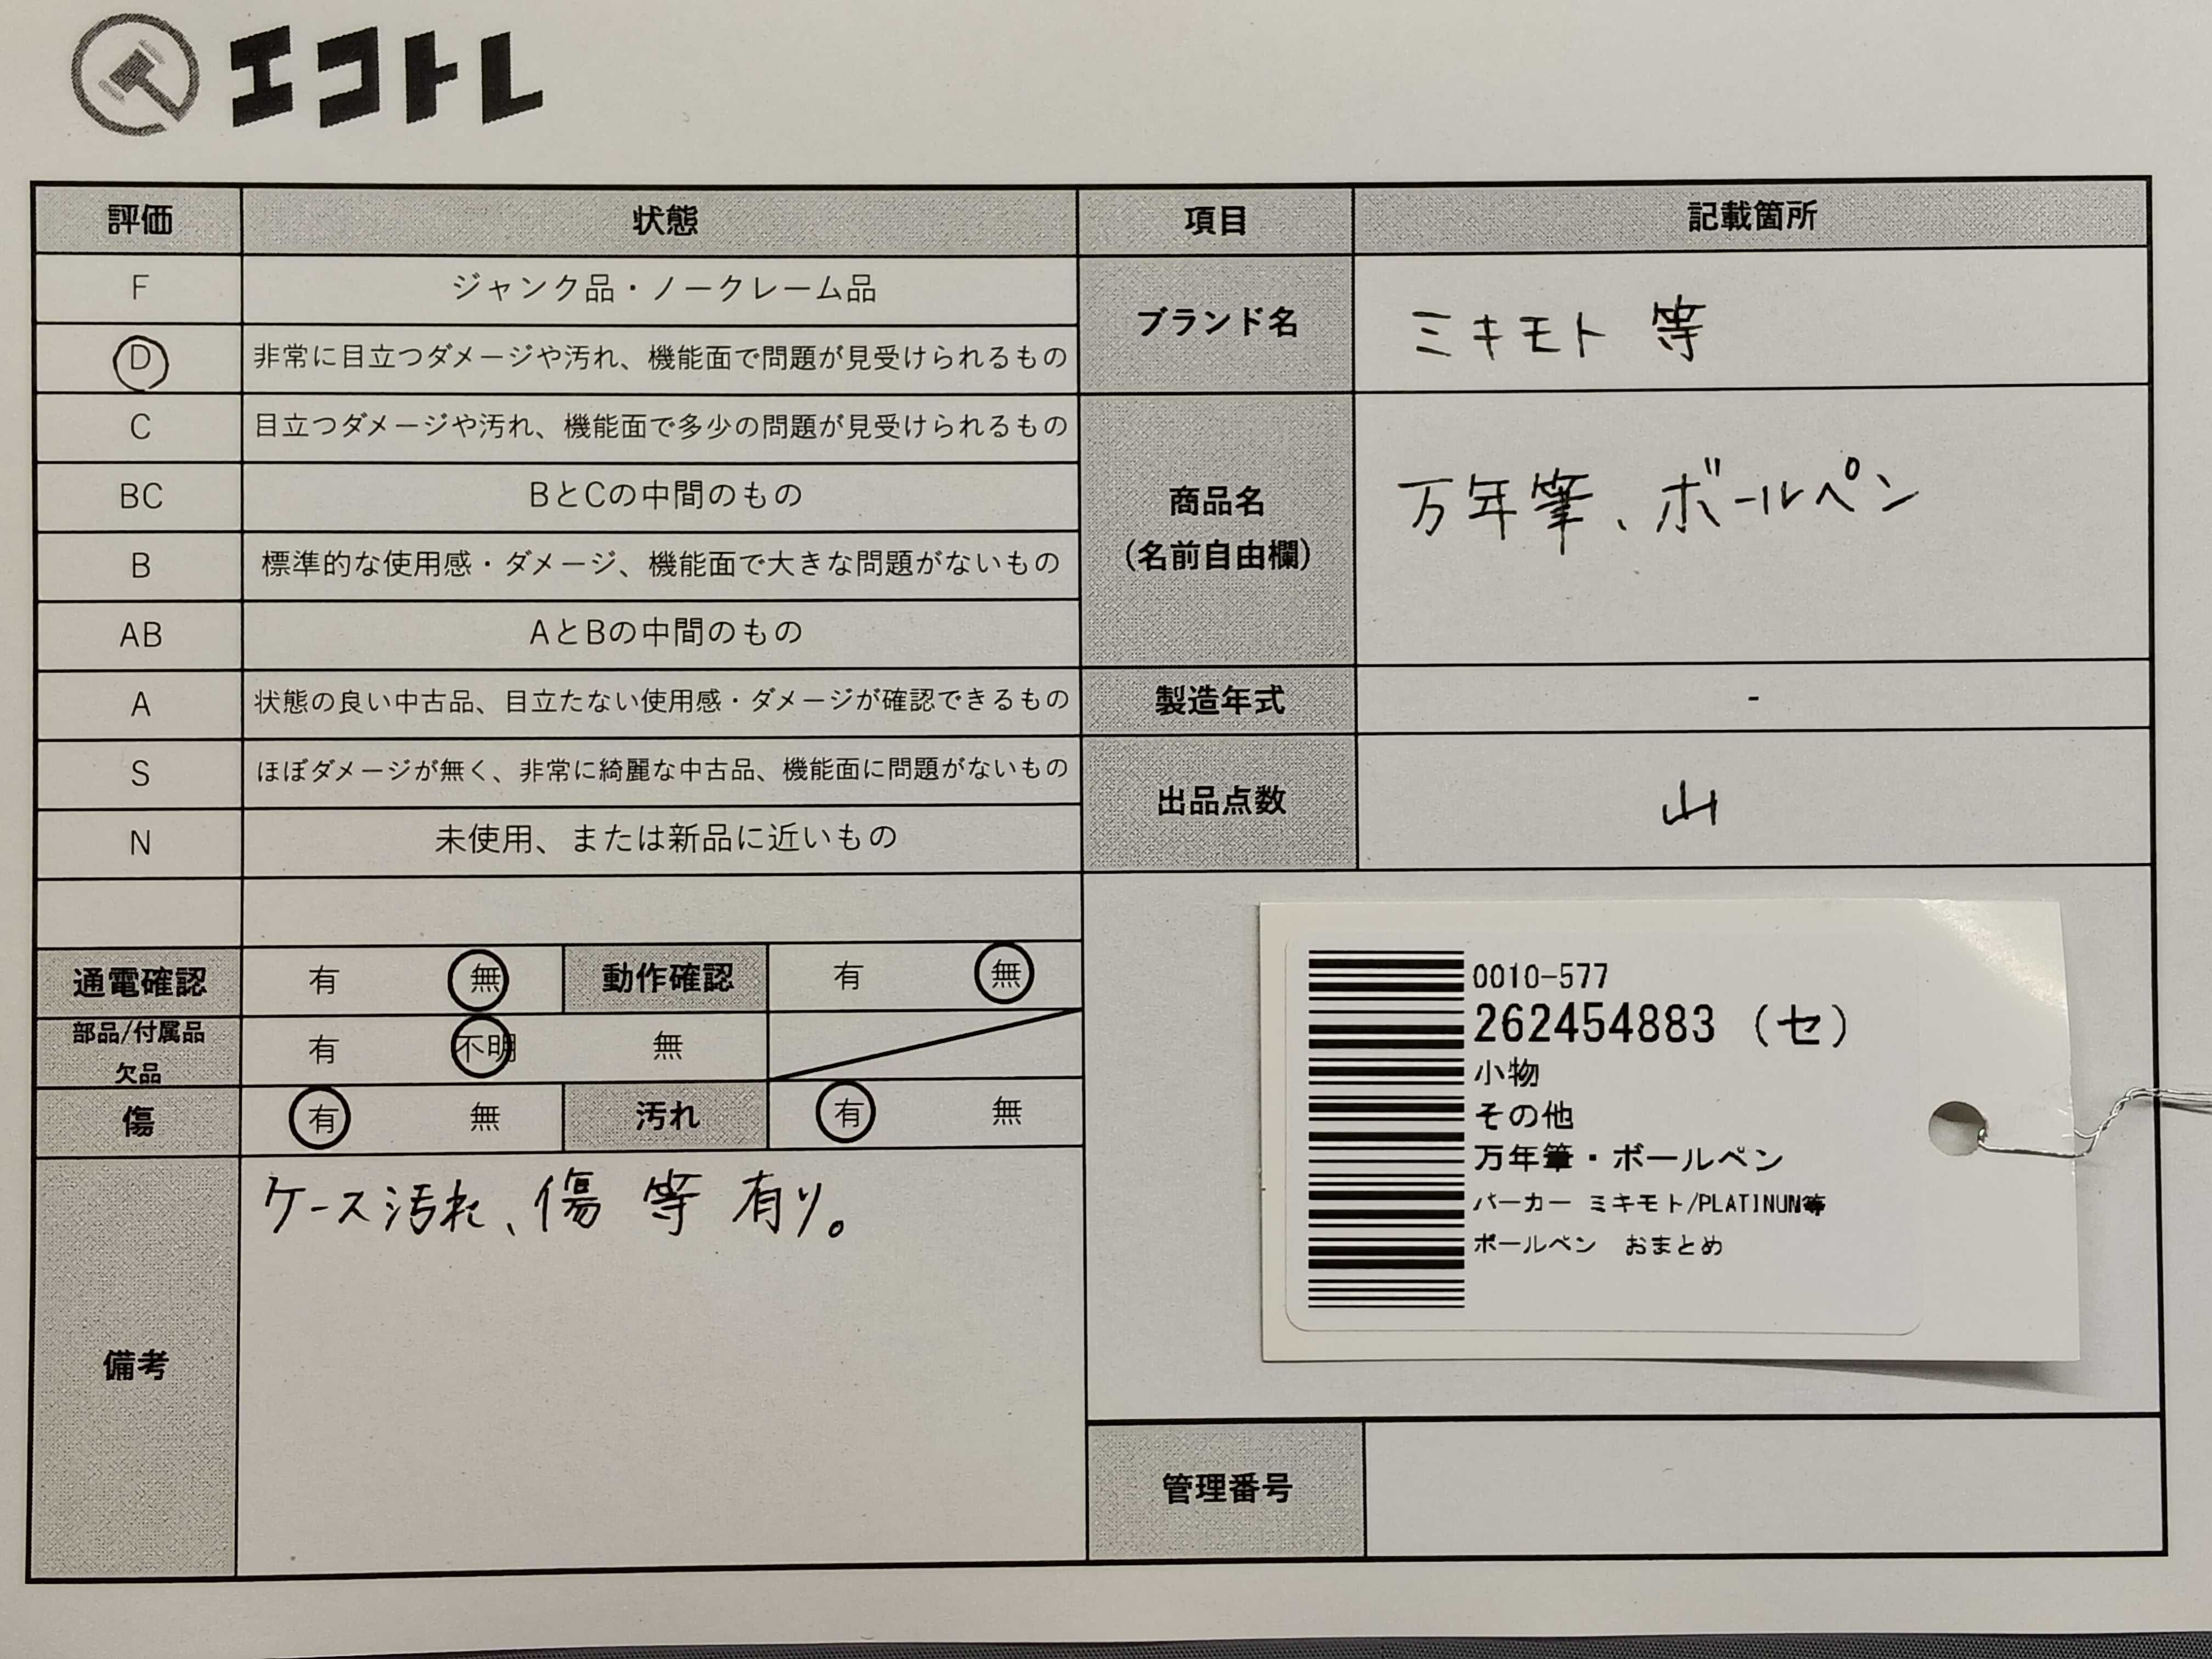 エコトレ
評価 状態 項目 記載箇所
F ジャンク品・ノークレーム品
D 非常に目立つダメージや汚れ、機能面で問題が見受けられるもの
C 目立つダメージや汚れ、機能面で多少の問題が見受けられるもの
BC BとCの中間のもの
B 標準的な使用感・ダメージ、機能面で大きな問題がないもの
AB AとBの中間のもの
A 状態の良い中古品、目立たない使用感・ダメージが確認できるもの
S ほぼダメージが無く、非常に綺麗な中古品、機能面に問題がないもの
N 未使用、または新品に近いもの
ブランド名 ミキモト 等
商品名
(名前自由欄)
万年筆、ボールペン
製造年式 -
出品点数 山
通電確認 有 無 動作確認 有 無
部品/付属品
欠品
有 不明 無
傷 有 無 汚れ 有 無
備考
ケース汚れ、傷 等 有り。
0010-577
262454883 (セ)
小物
その他
万年筆・ボールペン
パーカー ミキモト/PLATINUM等
ボールペン おまとめ
管理番号